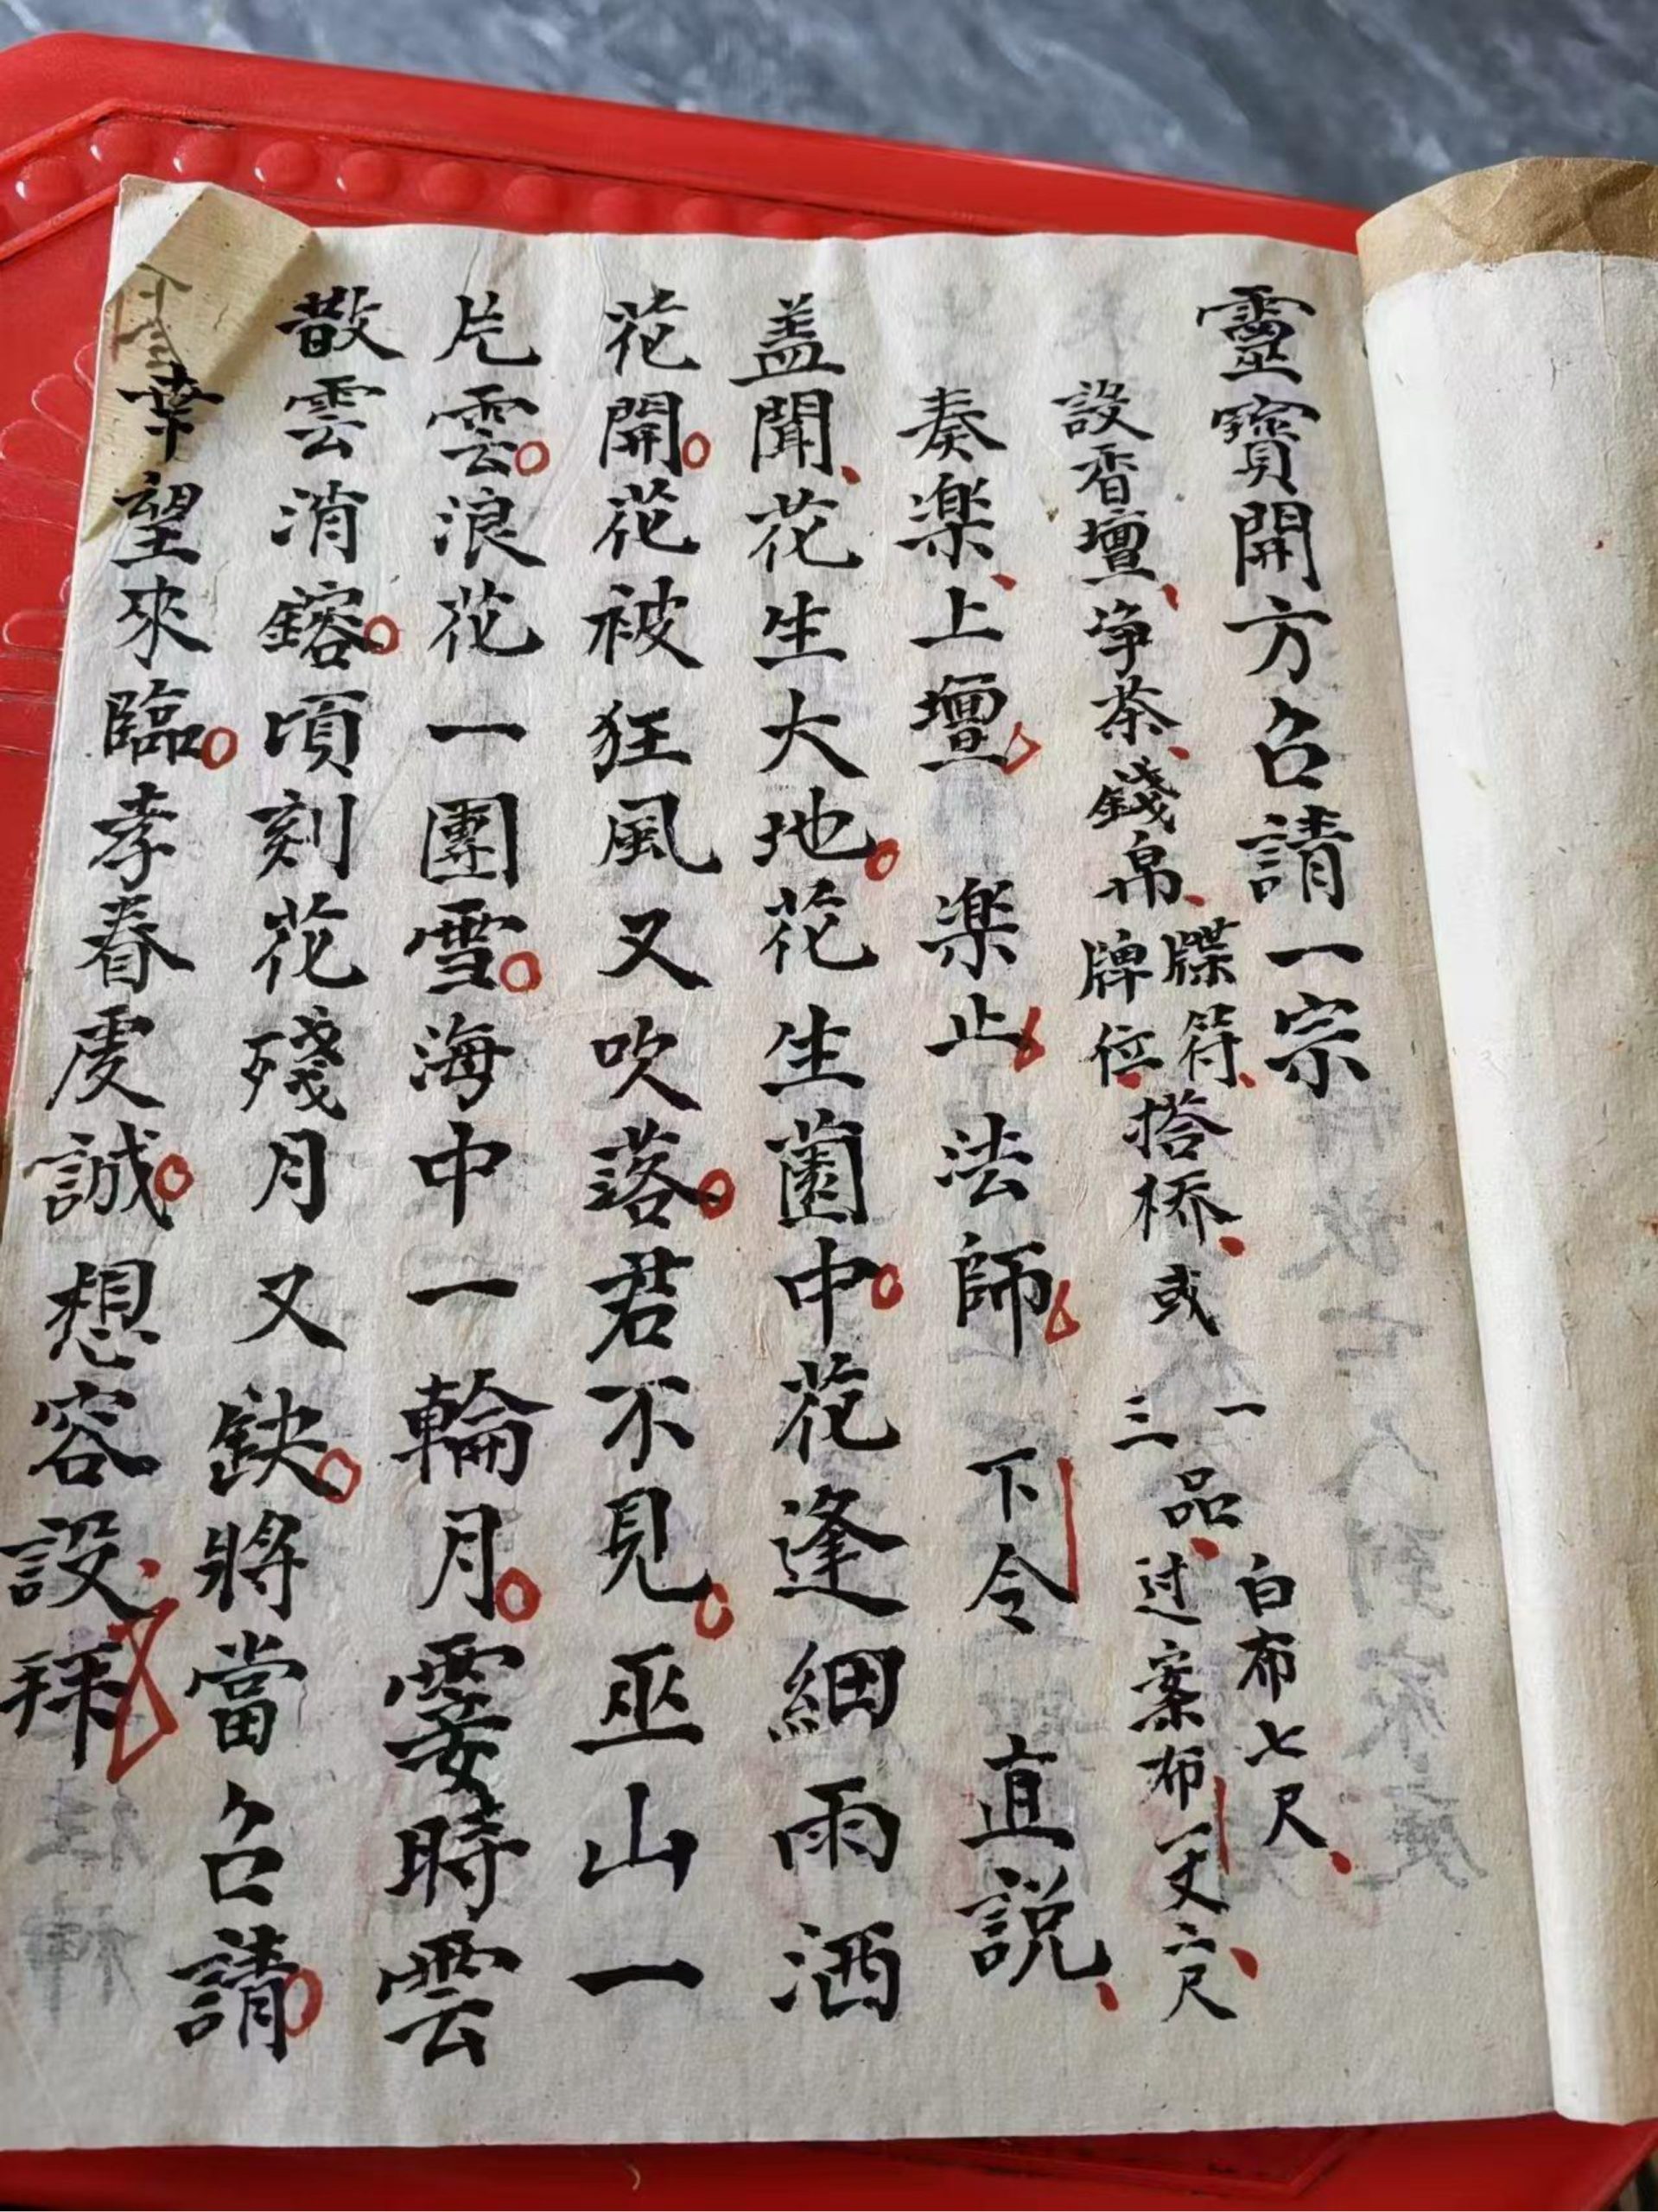 靈寳開方召請一宗
設香壇、净茶、錢帛、牒符、牌位、搭桥、或一三品、白布七尺、过案布一丈六尺
奏楽、上壇 楽止 法師 下令 直説、
盖聞、花生大地。花生菌中。花逢細雨洒
花開。花被狂風又吹落。君不見。巫山一
片雲。浪花一團雪。海中一輪月。霎時雲
散雲消鎔。頃刻花殘月又缺。將當召請。
幸望來臨。孝眷虔誠。想容設拜